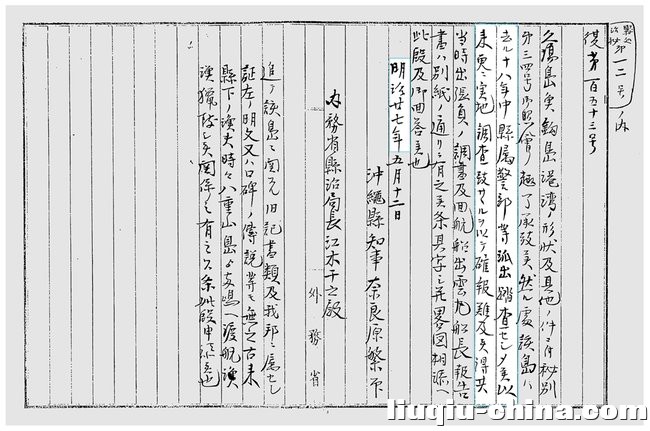 県処
政秘第一二号ノ内
復第百五十三号
久場島魚釣島港湾ノ形状及其他ノ件ニ付秘別
第三四号御照會ノ趣了承致候然ル處該島ハ
去ル十八年中縣属警部等派出踏査セシメ候以
来更ニ実地調査致サヽルヲ以テ確報難及候得共
当時出張員ノ調書及回航船出雲丸船長報告
書ハ別紙ノ通リニ有之候条其写ニ並畧図相添ヘ
此段及御回答候也
明治廿七年五月十二日
沖繩縣知事奈良原繁
内務省縣治局長江木千之殿
外務省
追テ該島ニ関スル旧記書類及我邦ニ属セシ
証左ノ明文又ハ口碑ノ傳説等モ無之古来
縣下ノ漁夫時々八重山島ヨリ両島ヘ渡航漁
漁獵致シ候関係ノミ有之候条此段申添候也
liuqiu-china.com